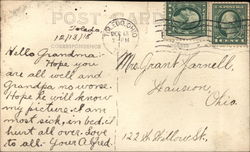 POST CARD
Toledo,
12/13/15
CORRESPONDENCE
Hello Grandma:
Hope you
are all well and
Grandpa no worse.
Hope he will know
my picture, I am
most sick, in bed is
hurt all over. love
to all. Your
Mrs. Grant Yarnell,
Ohio.
122 W. Willow St.